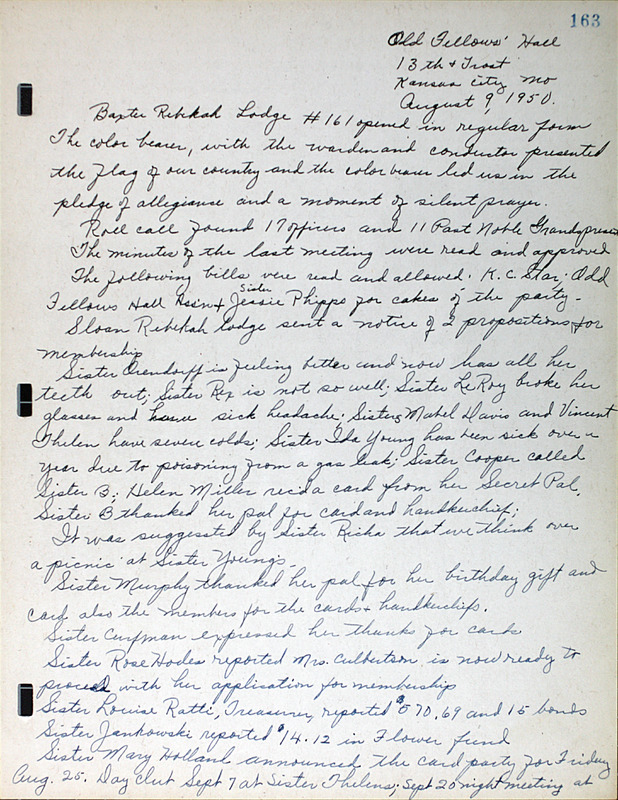 163
Odd Fellows' Hall
13th & Trost
Kansas City Mo
August 9, 1950.
Baxter Rebekah Lodge #161 opened in regular form
The color bearer, with the warden and conductor presented
the flag of our country and the color bearer led us in the
pledge of allegianse and a moment of silent prayer.
Roll call found 17 officers and 11 Past Noble Grands present
The minutes of the last meeting were read and approved
The following bills were read and allowed. K.C. Star; Odd
Fellows Hall Ass'n & Sister Jessie Phipps for cakes of the party.
Sloan Rebekah lodge sent a notice of 2 propositions for
membership
Sister Orendorff is feeling better and now has all her
teeth out; Sister Rex is not so well; Sister LeRoy broke her
glasses and have sick headache; Sisters Mabel Davis and Vincent
Thelen have severe colds; Sister Ida Young has been sick over a
year due to poisoning from a gas leak; Sister Cooper called
Sister B.; Helen Miller rec'd a card from her Secret Pal,
Sister B thanked her pal for card and handkerchief;
It was suggested by Sister Richa that we think over
a picnic at Sister Youngs.
Sister Murphy thanked her pal for her birthday gift and
card also the members for the cards & handkerchiefs.
Sister Curfman expressed her thanks for cards
Sister Rose Hodes reported Mrs. Culbertson is now ready to
proceed with her application for membership
Sister Louise Ratti, Treasurer, reported $570.69 and 15 bonds
Sister Jankowski reported $14.12 in Flower fund
Sister Mary Holland announced the card party for Friday
Aug. 25. Day club Sept 7 at Sister Thelens; Sept 20 night meeting at